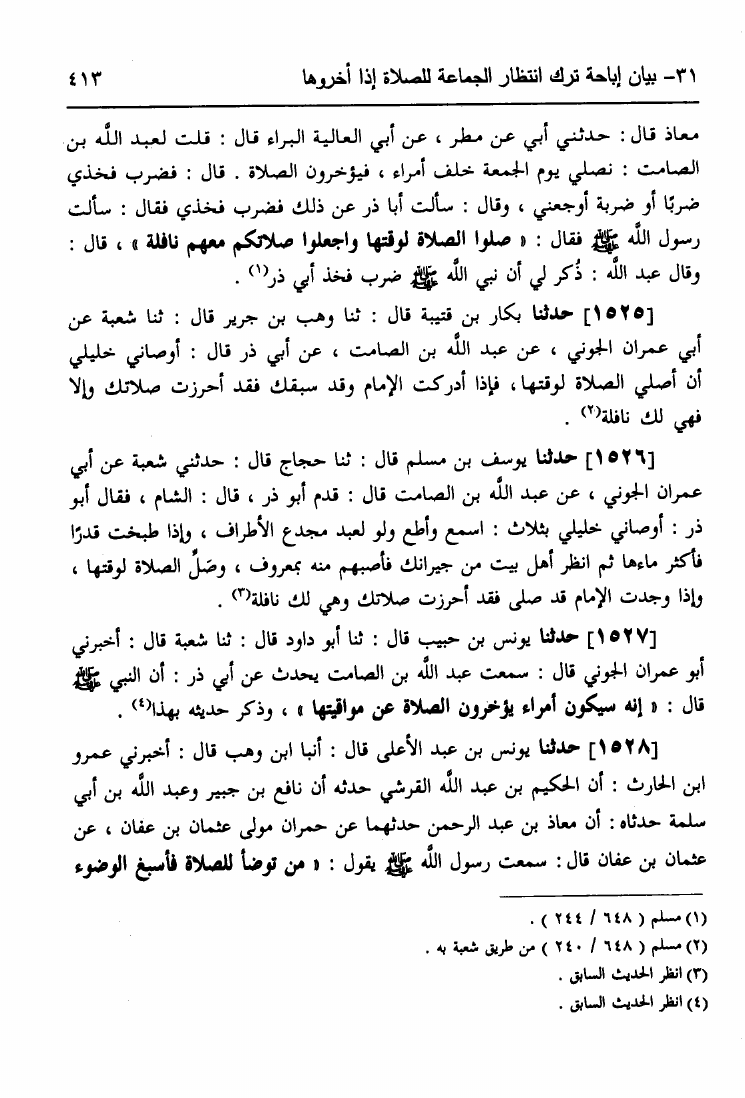 ٣١- بيان إباحة ترك انتظار الجماعة للصلاة إذا أخروها ٤١٣
معاذ قال : حدثني أبي عن مطر ، عن أبي العالية البراء قال : قلت لعبد اللَّه بن
الصامت : نصلي يوم الجمعة خلف أمراء ، فيؤخرون الصلاة . قال : فضرب فخذي
ضربًا أو ضربة أوجعني ، وقال : سألت أبا ذر عن ذلك فضرب فخذي فقال : سألت
رسول اللَّه ﷺ فقال : « صلوا الصلاة لوقتها واجعلوا صلاتكم معهم نافلة » ، قال :
وقال عبد اللَّه : ذُكر لي أن نبي اللَّه ﷺ ضرب فخذ أبي ذر(١) .
[١٥٢٥] حدثنا بكار بن قتيبة قال : ثنا وهب بن جرير قال : ثنا شعبة عن
أبي عمران الجوني ، عن عبد اللَّه بن الصامت ، عن أبي ذر قال : أوصاني خليلي
أن أصلي الصلاة لوقتها، فإذا أدركت الإمام وقد سبقك فقد أحرزت صلاتك وإلا
فهي لك نافلة(٢) .
[١٥٢٦] حدثنا يوسف بن مسلم قال : ثنا حجاج قال : حدثني شعبة عن أبي
عمران الجوني ، عن عبد اللَّه بن الصامت قال : قدم أبو ذر ، قال : الشام ، فقال أبو
ذر : أوصاني خليلي بثلاث : اسمع وأطع ولو لعبد مجدع الأطراف ، وإذا طبخت قدرًا
فأكثر ماءها ثم انظر أهل بيت من جيرانك فأصبهم منه بمعروف ، وصَلِّ الصلاة لوقتها ،
وإذا وجدت الإمام قد صلى فقد أحرزت صلاتك وهي لك نافلة(٣) .
[١٥٢٧] حدثنا يونس بن حبيب قال : ثنا أبو داود قال : ثنا شعبة قال : أخبرني
أبو عمران الجوني قال : سمعت عبد اللَّه بن الصامت يحدث عن أبي ذر : أن النبي ﷺ
قال : « إنه سيكون أمراء يؤخرون الصلاة عن مواقيتها » ، وذكر حديثه بهذا(٤) .
[١٥٢٨] حدثنا يونس بن عبد الأعلى قال : أنبا ابن وهب قال : أخبرني عمرو
ابن الحارث : أن الحكيم بن عبد اللَّه القرشي حدثه أن نافع بن جبير وعبد اللَّه بن أبي
سلمة حدثاه : أن معاذ بن عبد الرحمن حدثهما عن حمران مولى عثمان بن عفان ، عن
عثمان بن عفان قال : سمعت رسول اللَّه ﷺ يقول : « من توضأ للصلاة فأسبغ الوضوء
(١) مسلم ( ٦٤٨ / ٢٤٤ ) .
(٢) مسلم ( ٦٤٨ / ٢٤٠ ) من طريق شعبة به .
(٣) انظر الحديث السابق .
(٤) انظر الحديث السابق .